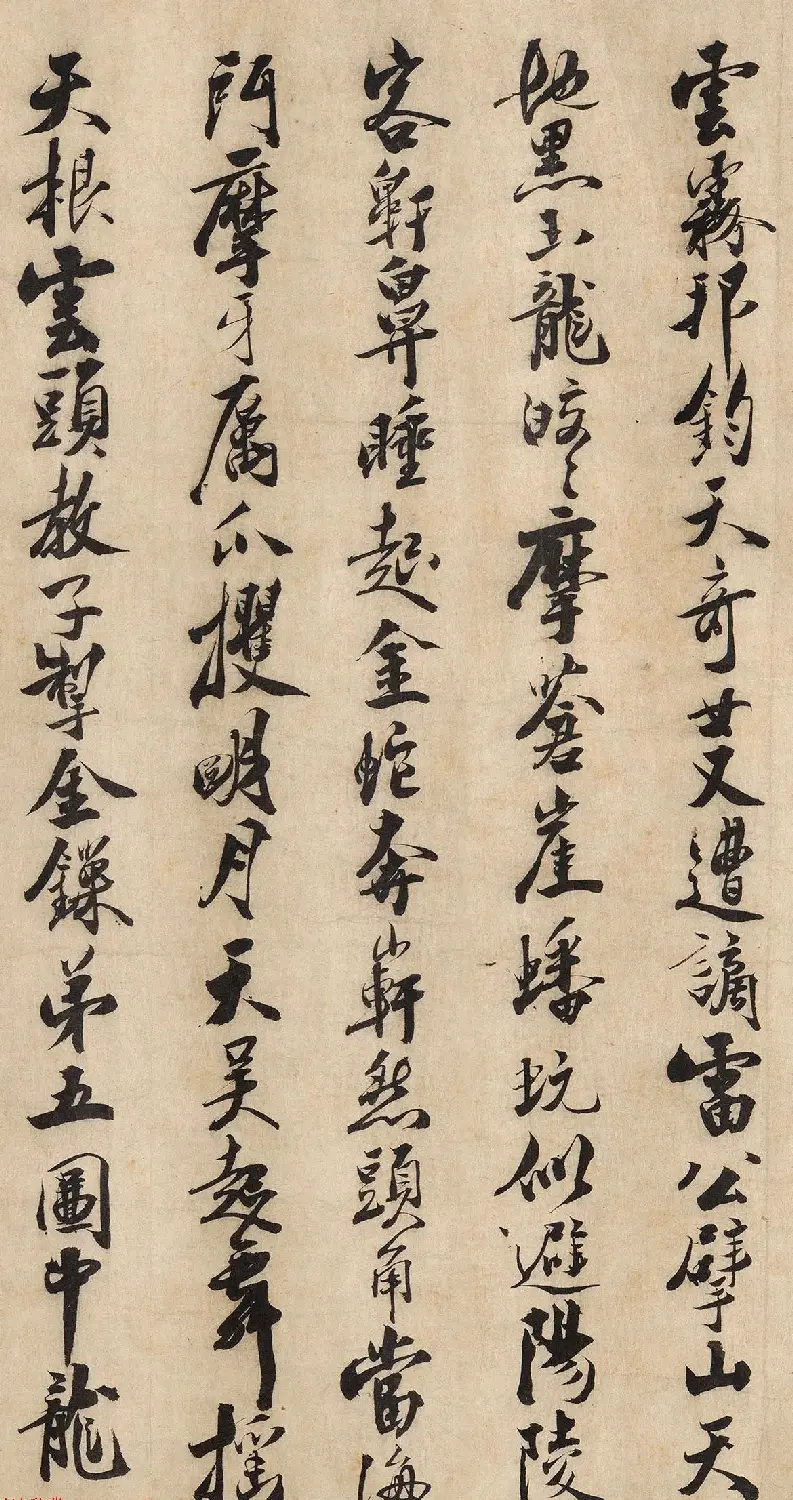 雲霧邪鈞天奇女又遭謫雷公擘山天
地黑玉龍皎〻摩蒼崖蟠坑似避陽陵
客鼾鼻睡起金蛇奔軒然頭角當海
門摩牙厲爪攫明月天吴起舞搖
天根雲頭教子掣金鏁弟五圖中龍